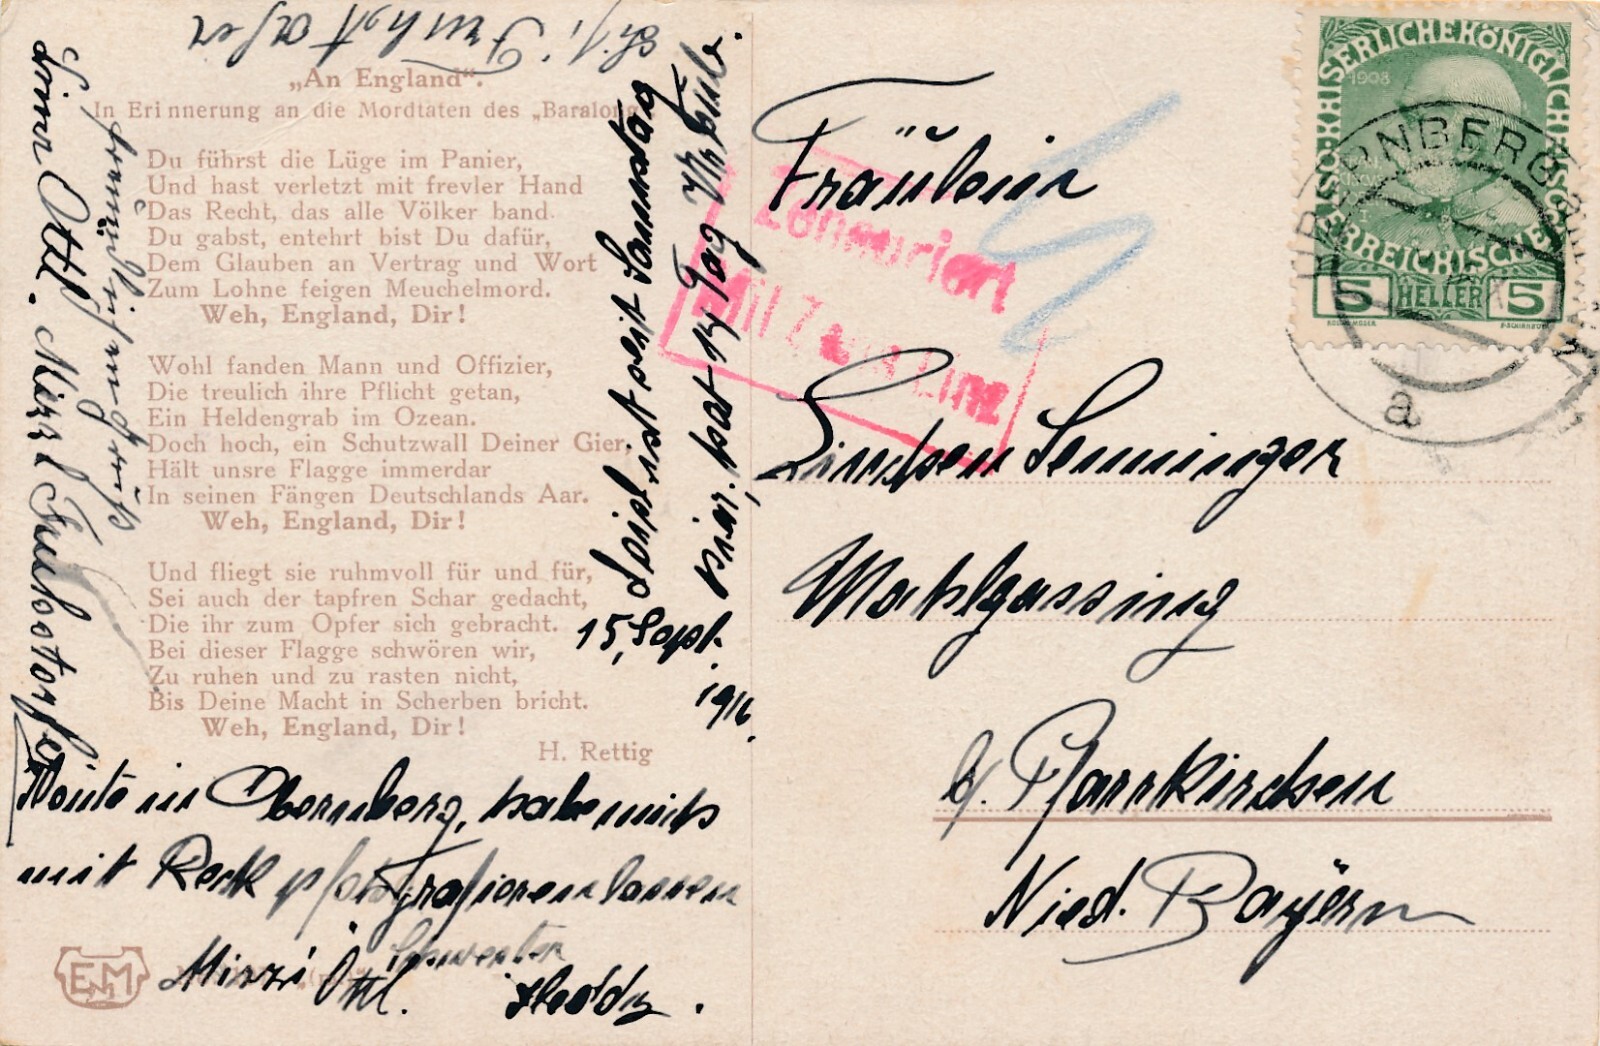 „An England“.
In Erinnerung an die Mordtaten des „Baralong
Du führst die Lüge im Panier,
Und hast verletzt mit frevler Hand
Das Recht, das alle Völker band.
Du gabst, entehrt bist Du dafür,
Dem Glauben an Vertrag und Wort
Zum Lohne feigen Meuchelmord.
Weh, England, Dir!
Wohl fanden Mann und Offizier,
Die treulich ihre Pflicht getan,
Ein Heldengrab im Ozean.
Doch hoch, ein Schutzwall Deiner Gier,
Hält unsre Flagge immerdar
In seinen Fängen Deutschlands Aar.
Weh, England, Dir!
Und fliegt sie ruhmvoll für und für,
Sei auch der tapfren Schar gedacht,
Die ihr zum Opfer sich gebracht.
Bei dieser Flagge schwören wir,
Zu ruhen und zu rasten nicht,
Bis Deine Macht in Scherben bricht.
Weh, England, Dir!
H. Rettig
Heute in Obernberg, habe mich
mit Reck photografieren lassen
Mirzi Ottl. Schwester
Loisl ist seit Samstag
hier, hat 14 Tag Urlaub.
15. Sept.
1916.
Fräulein
Linchen Semminger
Mahlgassing
b/. Pfarrkirchen
Nied. Bayern
Zensuriert
Mil Zens Linz
KAISERLICHE KÖNIGLICHE
ÖSTERREICHISCHE
1908
5 HELLER 5
OBERNBERG AM INN
a